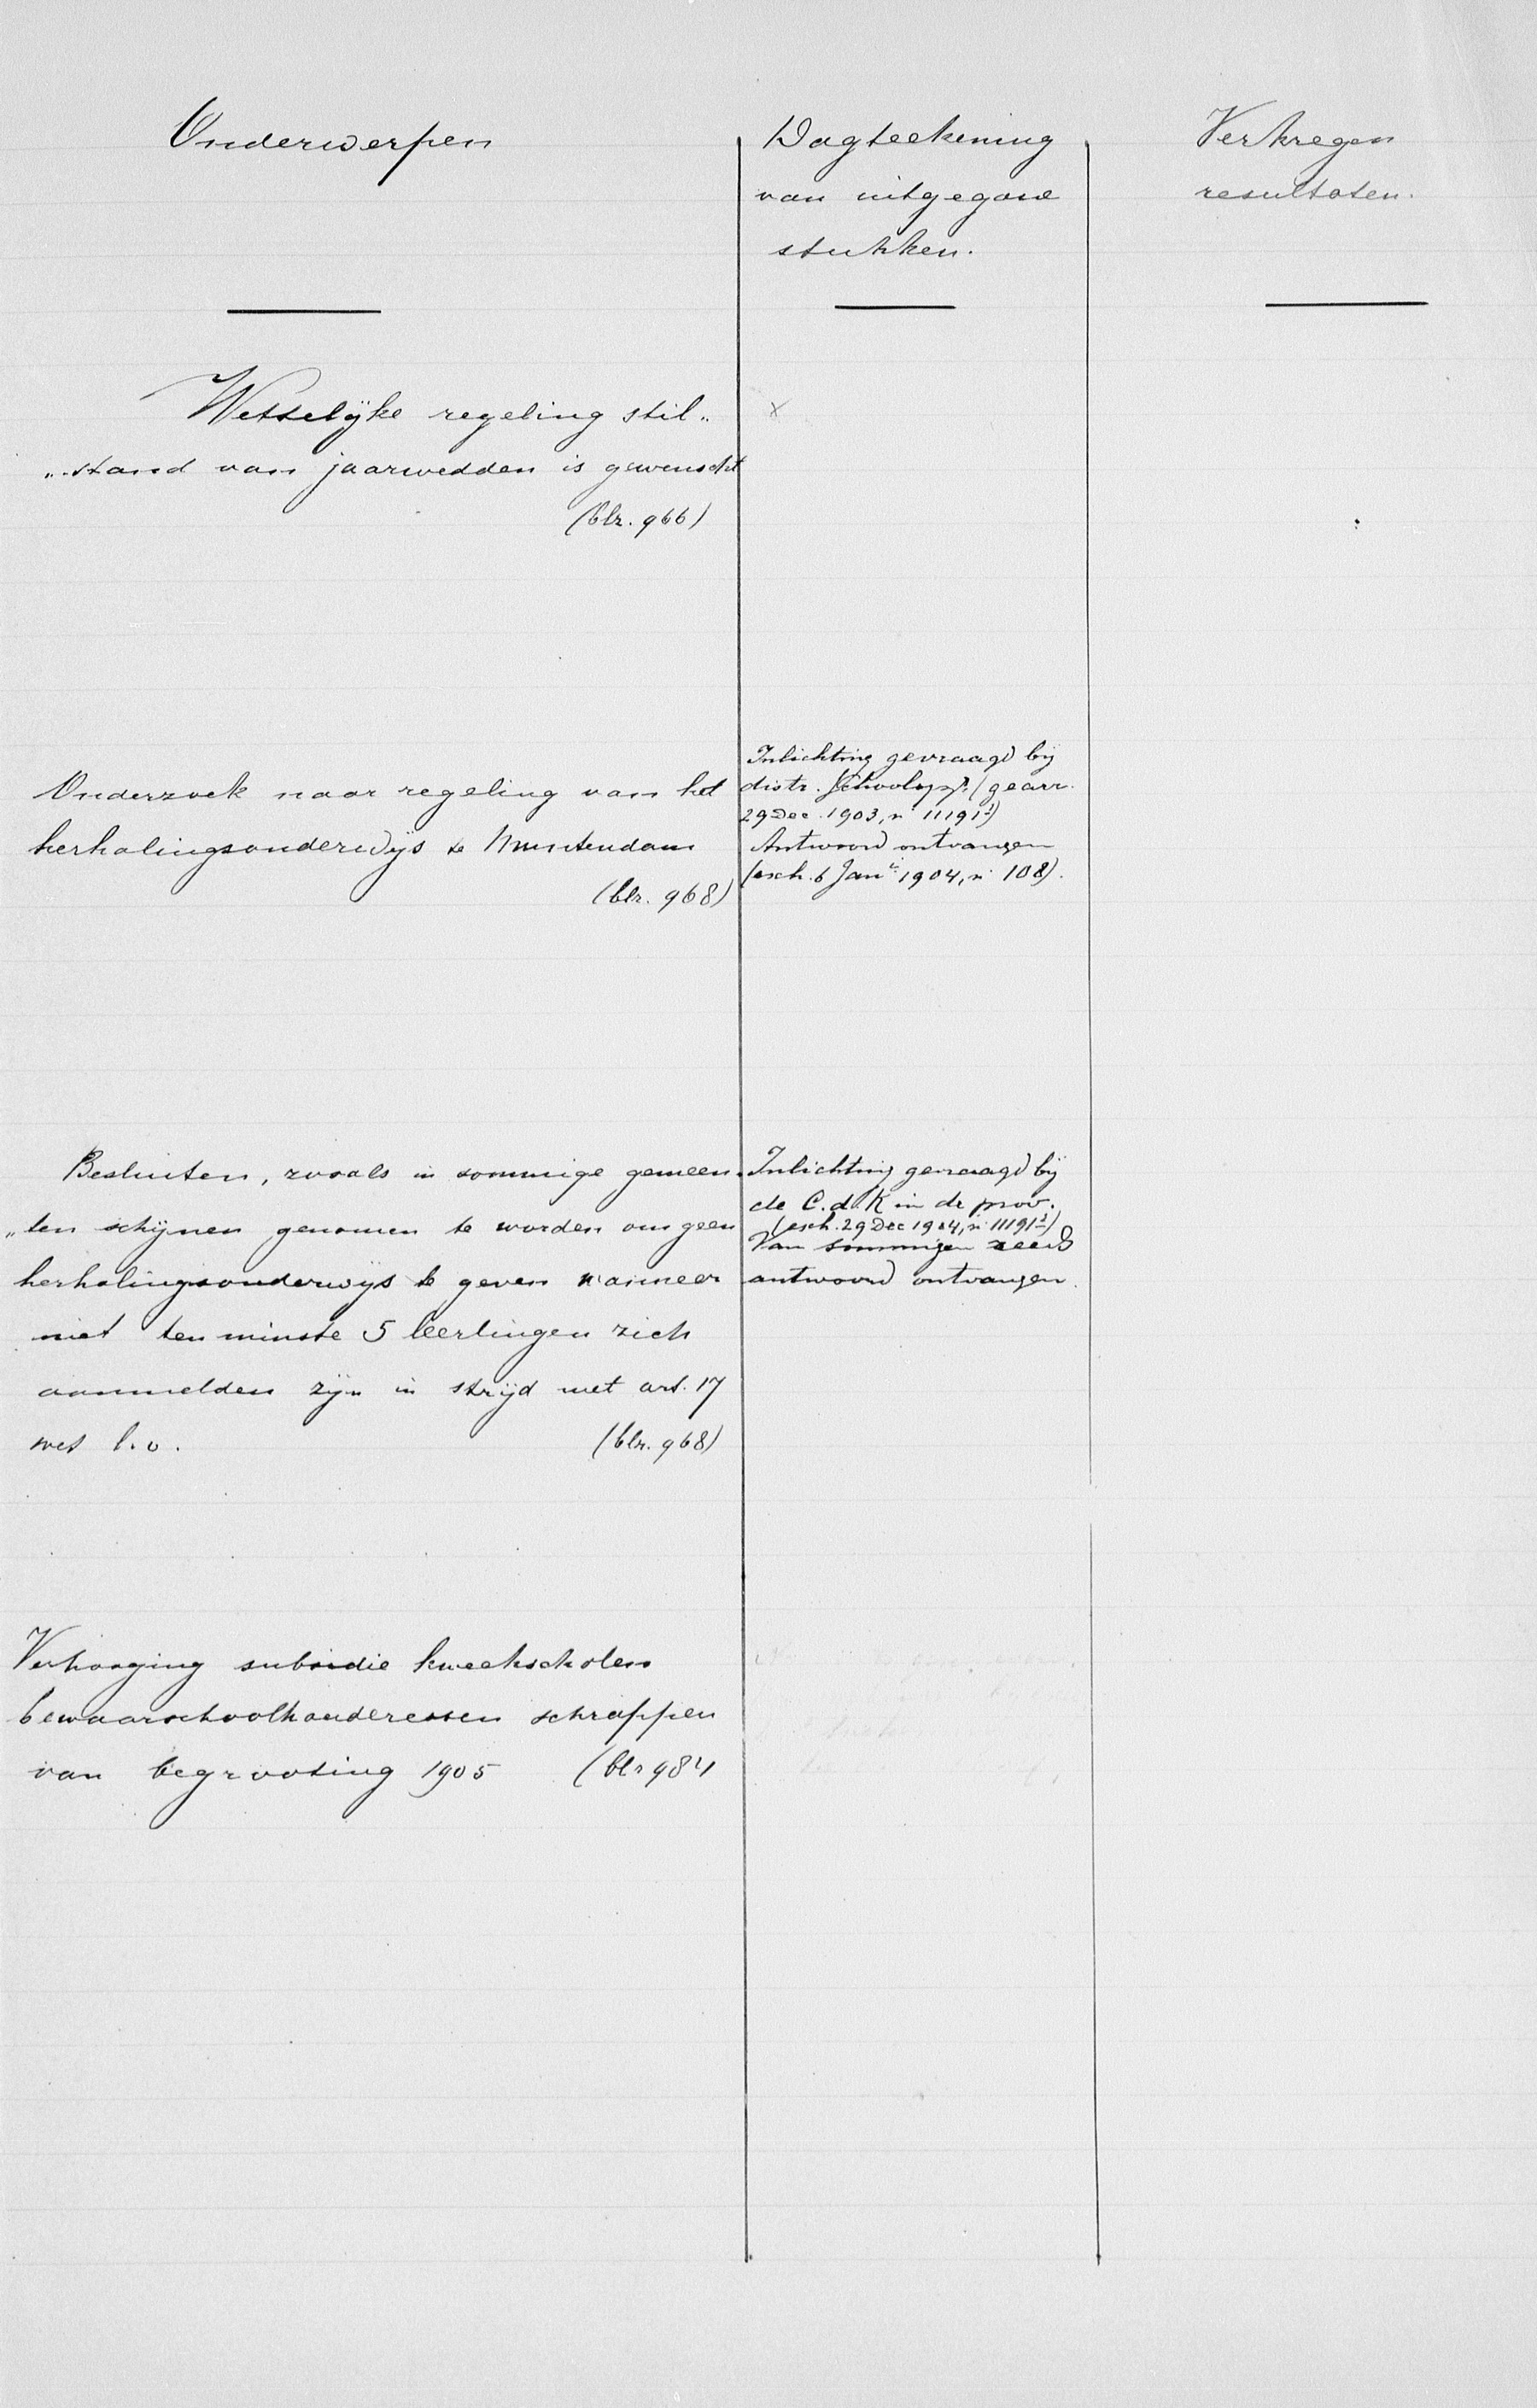 Onderwerpen
Dagteekening
van uitgegane
stukken.
Verkregen
resultaten.
Wettelijke regeling stil„
„stand van jaarwedden is gewenscht
(blz. 966)
x
Onderzoek naar regeling van het
herhalingsonderwijs te Muntendam
(blz. 968)
Inlichting gevraagd bij
distr. Schoolopz. (gearr.
29 Dec. 1903, n 11191¹)
Antwoord ontvangen
(exh. 6 Jan 1904, n 108).
Besluiten, zooals in sommige gemeen„
„ten schijnen genomen te worden om geen
herhalingsonderwijs te geven wanneer
niet ten minste 5 leerlingen zich
aanmelden zijn in strijd met art. 17
wet l.o. (blz. 968)
Inlichting gevraagd bij
de C.d.K in de prov.
(exh. 29 Dec 1904, n 11191)
Van sommigen reeds
antwoord ontvangen.
Verhooging subsidie kweekscholen
bewaarschoolhouderessen schrappen
van begrooting 1905 (blz 984